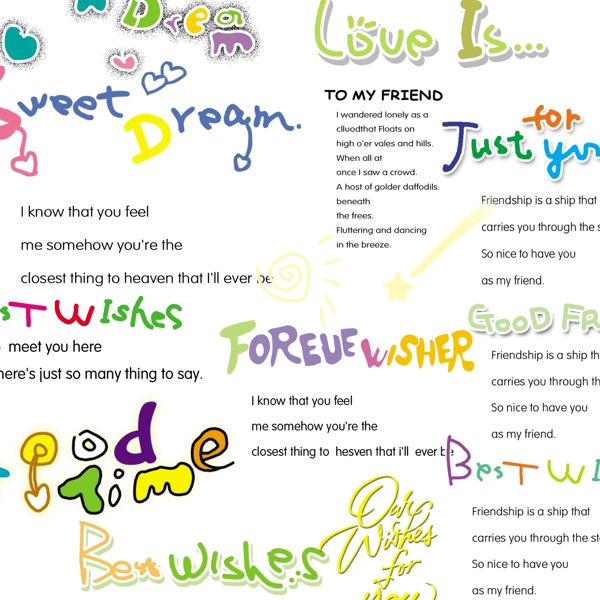 Dream
Love Is...
Sweet Dream.
TO MY FRIEND
I wandered lonely as a
clluodthat Floats on
high o'er vales and hills.
When all at
once I saw a crowd.
A host of golder daffodils.
beneath
the frees.
Fluttering and dancing
in the breeze.
for
Just you
Friendship is a ship that
carries you through the s
So nice to have you
as my friend.
I know that you feel
me somehow you're the
closest thing to heaven that I'll ever be
sT WIshes
meet you here
here's just so many thing to say.
FOREUE WISHER
I know that you feel
me somehow you're the
closest thing to hesven that i'll ever be
GOOD FR
Friendship is a ship th
carries you through th
So nice to have you
as my friend.
good
Time
BesT WI
Friendship is a ship that
carries you through the st
So nice to have you
as my friend.
Best Wishes
Our
Wishes
for
you